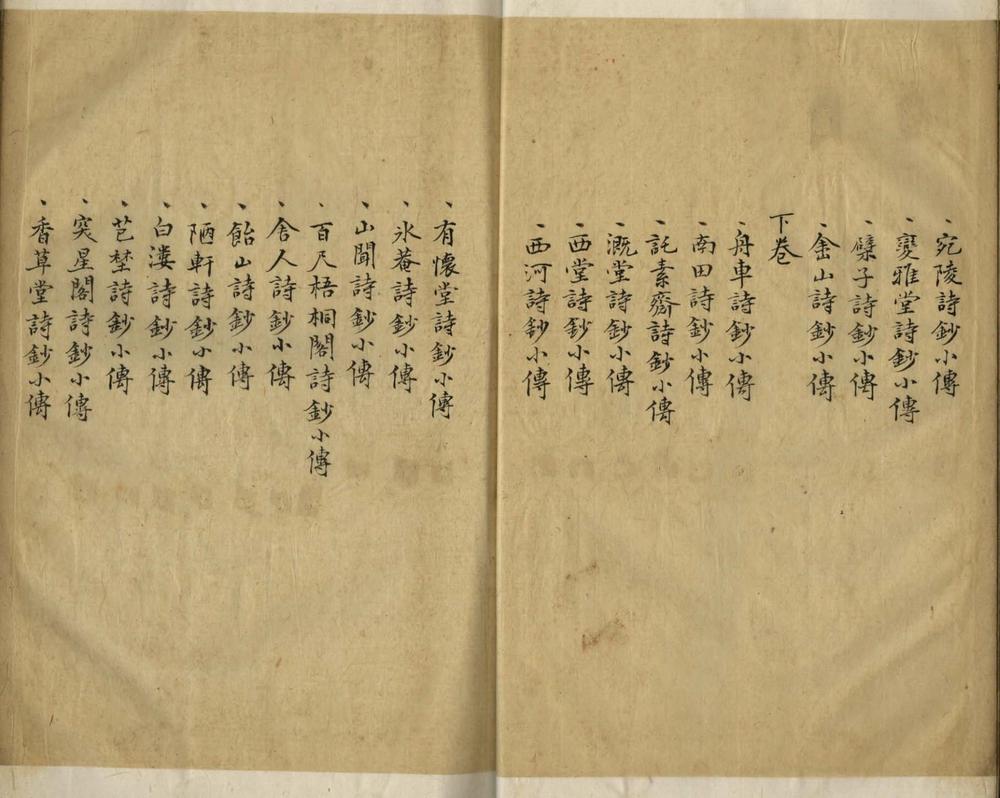 、宛陵詩鈔小傳
、變雅堂詩鈔小傳
、檗子詩鈔小傳
、畬山詩鈔小傳
下卷
、舟車詩鈔小傳
、南田詩鈔小傳
、託素齋詩鈔小傳
、溉堂詩鈔小傳
、西堂詩鈔小傳
、西河詩鈔小傳
、有懷堂詩鈔小傳
、氷菴詩鈔小傳
、山聞詩鈔小傳
、百尺梧桐閣詩鈔小傳
、舍人詩鈔小傳
、飴山詩鈔小傳
、陋軒詩鈔小傳
、白漊詩鈔小傳
、芭埜詩鈔小傳
、突星閣詩鈔小傳
、香草堂詩鈔小傳